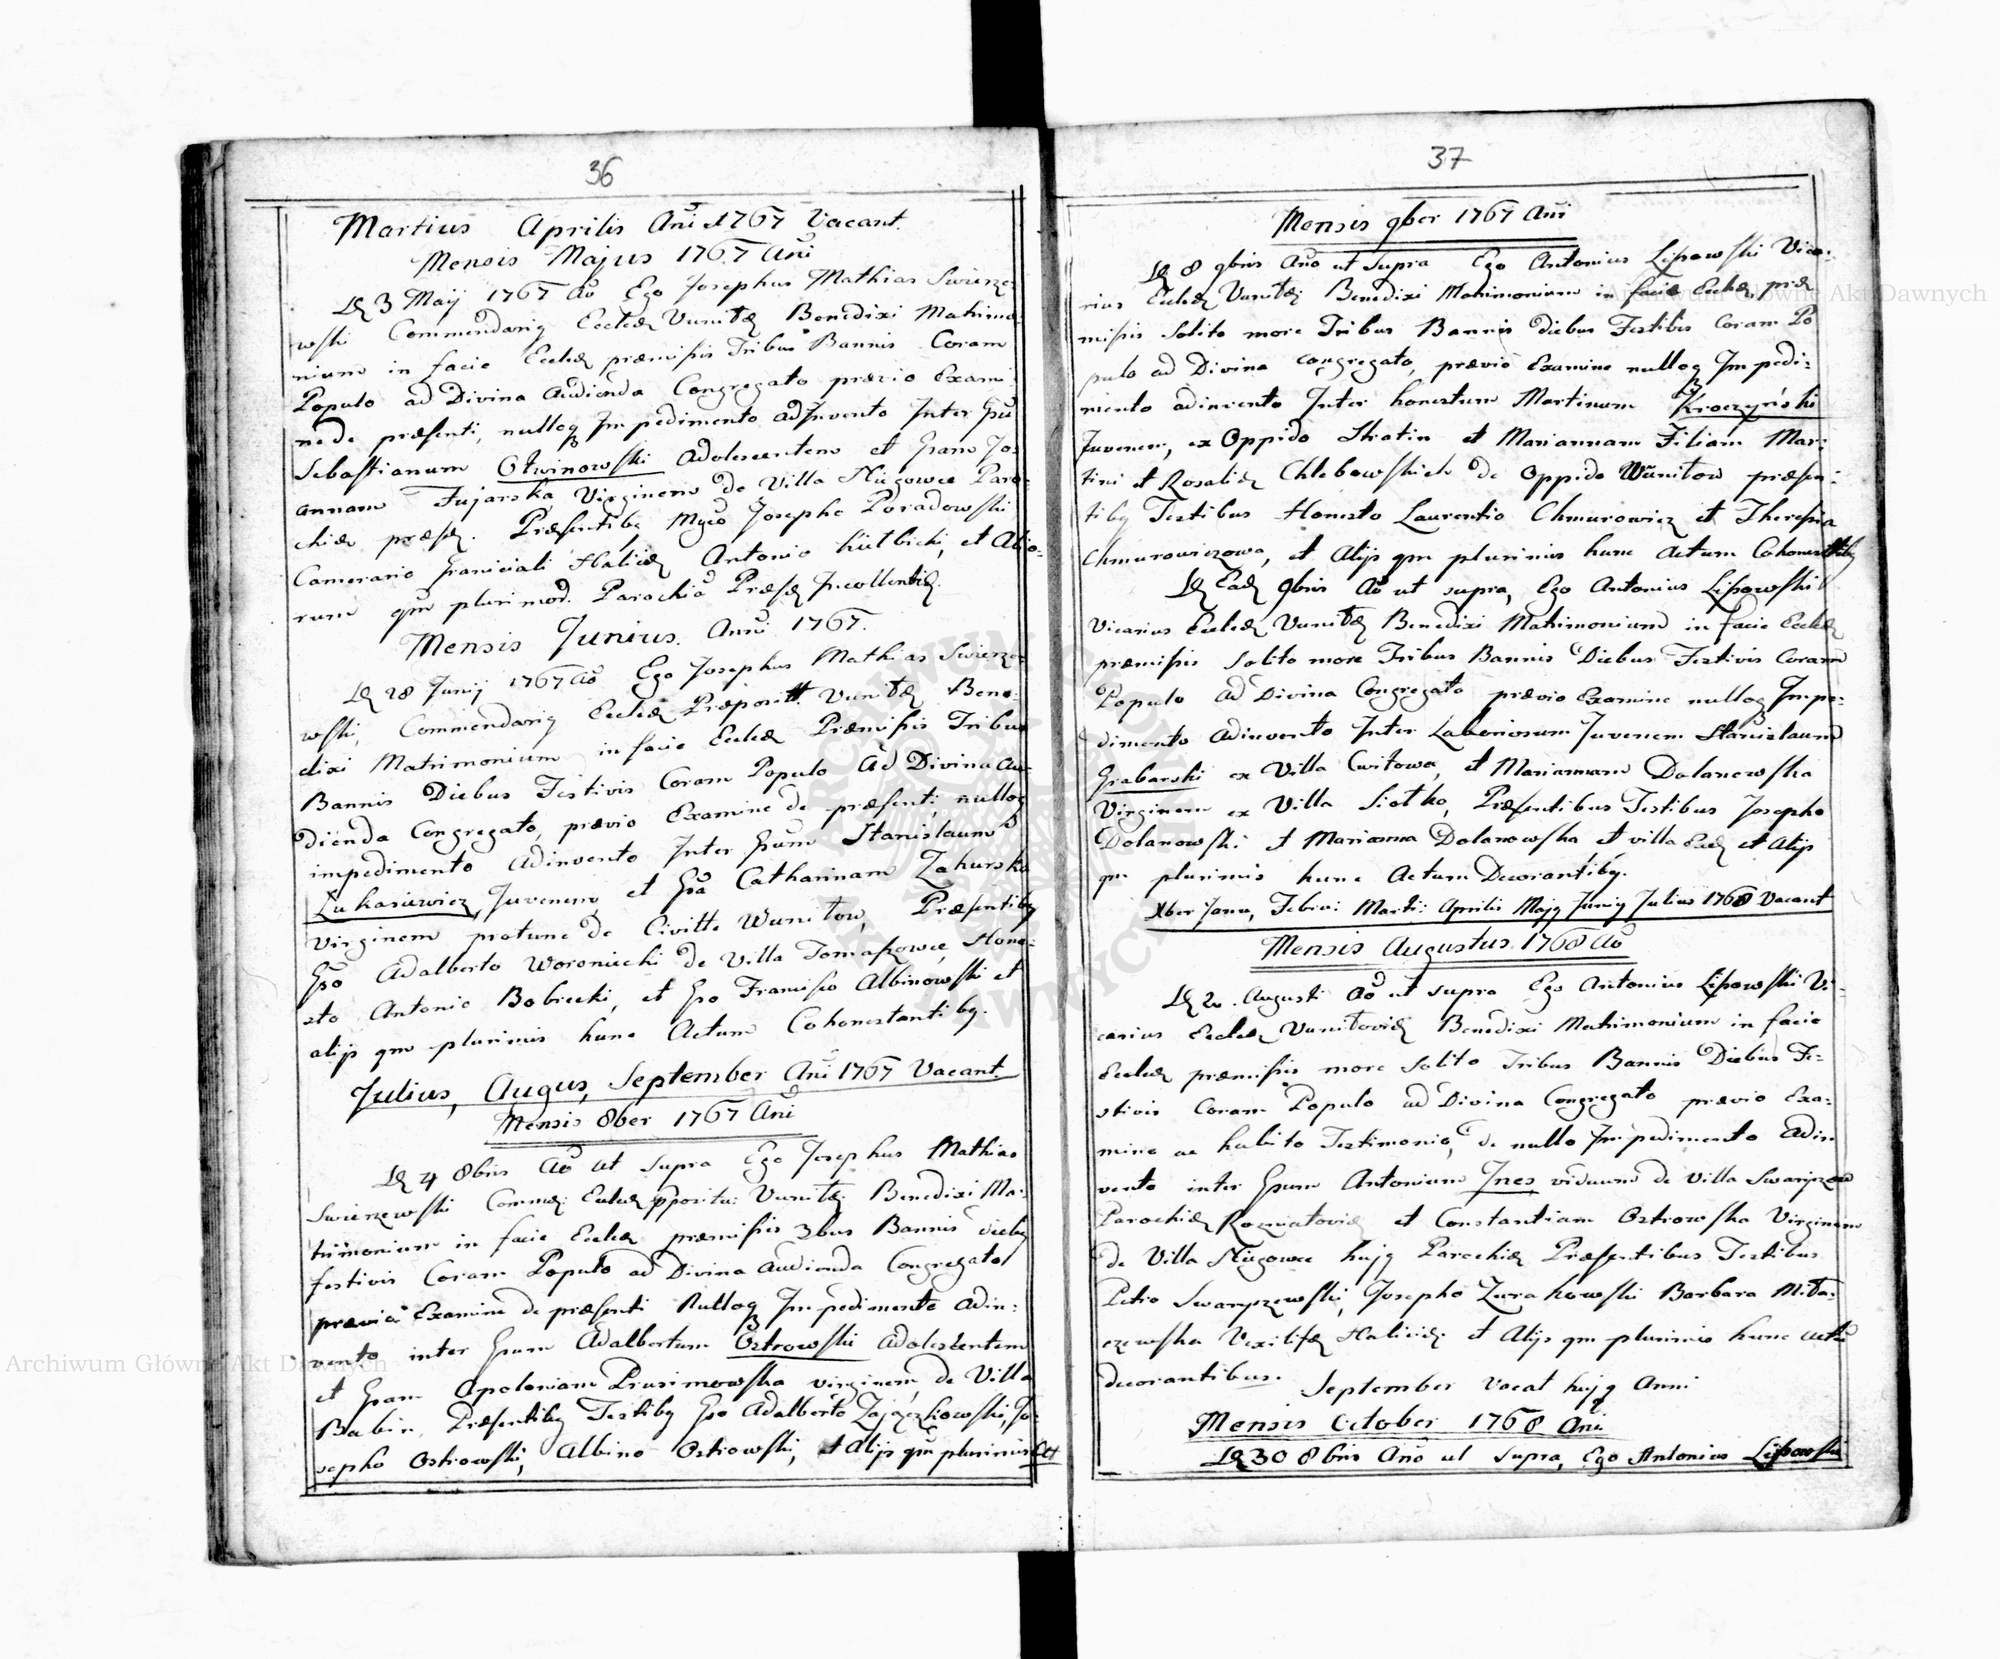 36
Martius Aprilis Añi 1767 Vacant.
Mensis Majus 1767 Añi
3 Maij 1767 Aõ Ego Josephus Mathias Swierze-
wski Commendarig Eccleæ Vunitæ Benedixi Matrimo-
nium in facie Eccleæ præmissis Tribus Bannis Coram
Populo ad Divina Audienda Congregato prævio Exami-
ne de præsenti, nulloq Impedimento adJnvento Jnter
Sebastianum Otwinowski Adolescentem et Jo-
annam Fujarska Virginem de Villa Paro-
chiæ præsæ. Præsentibg Josepho Poradowski
Camerario Graniciali Haliciæ Antonio et Alio-
rum plurimor. Parochiæ Præsæ Jncollentiæ.
Mensis Junius Anni 1767.
28 Junij 1767 Aõ Ego Josephus Mathias Swierze-
wski, Commendarig Eccleæ Præposittt Vunitæ, Bene-
dixi Matrimonium in facie Eccleæ Præmissis Tribus
Bannis Diebus Festivis Coram Populo Ad Divina Au-
dienda Congregato, prævio Examine de præsenti, nulloq
impedimento Adinvento Jnter Stanislaum
Łukasiewicz, Juvenem et Catharinam Zakurska
Virginem protunc de Civitte Wunitow, Præsentibg
Adalberto Woroniecki de Villa Tomaszowce, Hone-
sto Antonio Bobrecki, et Francisco Albinowski et
alijs qm plurimis hunc Actum Cohonestantibg.
Julius, Augus, September Añi 1767 Vacant.
Mensis 8ber 1767 Añi
4 8bris Aõ ut supra Ego Josephus Mathias
Swierzewski Commæ: Eccleæ pposita: Vunitæ. Benedixi Ma-
trimonium in facie Eccleæ præmissis 3bus Bannis diebg
festivis Coram Populo ad Divina Audienda Congregato
prævio Examine de præsenti Nulloq Jmpedimento Adin-
vento inter Adalbertum Ostrowski Adolescentem
et Apoloniam Prusimowska virginem, de Villa
Babin, Præsentibg Testibg Adalberto Zajączkowski, Jo-
sepho Ostrowski, Albino Ostrowski, et Alijs qm plurimis
37
Mensis 9ber 1767 Añi
8 9bris Año ut Supra Ego Antonius Lipowski Vica-
rius Eccleæ Vunitæ Benedixi Matrimonium in facie Eccleæ, præ
missis Solito more Tribus Bannis diebus Festibis Coram Po
pulo ad Divina congregato, prævio Examine nulloq Jmpedi-
mento adinvento Jnter honestum Martinum Kroczynski
Juvenem, ex Oppido Stratin et Mariannam Filiam Mar-
tini et Rosaliæ Chlebowskich de Oppido Wunitow præsen-
tibg Testibus Honesto Laurentio Chmurowicz et Theresia
Chmurowiczowa, et Alijs qm plurimis hunc Actum
Eadæ 9bris Aõ ut supra, Ego Antonius Lipowski
Vicarius Eccleæ Vunitæ Benedixi Matrimonium in facie Eccleæ
præmissis Solito more Tribus Bannis Diebus Festivis Coram
Populo ad Divina Congregato prævio Examine nulloq Jmpe-
dimento Adinvento Jnter Laboriosum Juvenem Stanislaum
Grabarski ex Villa Cwitowa, et Mariannam Dolanowska
Virginem ex Villa Siolko, Præsentibus Testibus Josepho
Dolanowski et Marianna Dolanowska et villa Eadæ et Alijs
qm plurimis hunc Actum Decorantibg.
Xber Janu, Febru: Marti: Aprilis Majg Junig Julius 1768 Vacant
Mensis Augustus 1768 Aõ
Augusti Aõ ut supra Ego Antonius Lipowski Vi-
carius Eccleæ Vunitoviæ Benedixi Matrimonium in facie
Eccleæ præmissis more Solito Tribus Bannis Diebus Fe-
stivis Coram Populo ad Divina Congregato prævio Exa-
mine ac habito Testimonio, de nullo Jmpedimento Adin
vento inter Antonium Jnes viduum de Villa
Parochiæ Rozniatoviæ et Constantiam Ostrowska Virginem
de Villa hujg Parochiæ Præsentibus Testibus
Petro Swaryczewski, Josepho Zurakowski Barbara
Haliciæ et Alijs qm plurimis hunc actu
decorantibus.
September vacat hujg Anni
Mensis October 1768 Añi
30 8bris Año ut supra, Ego Antonius Lipowski
Archiwum Główne Akt Dawnych
Archiwum Główne Akt Dawnych